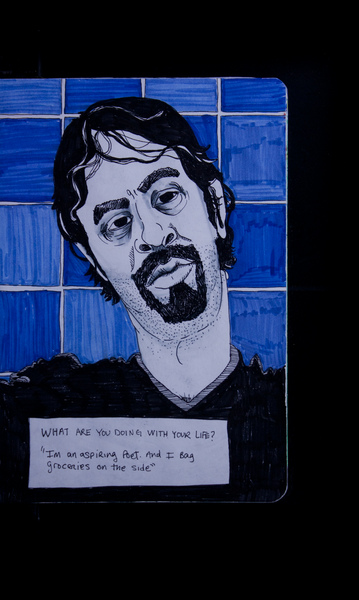 WHAT ARE YOU DOING WITH YOUR LIFE?
"Im an aspiring Poet. And I Bag
groceries on the side"